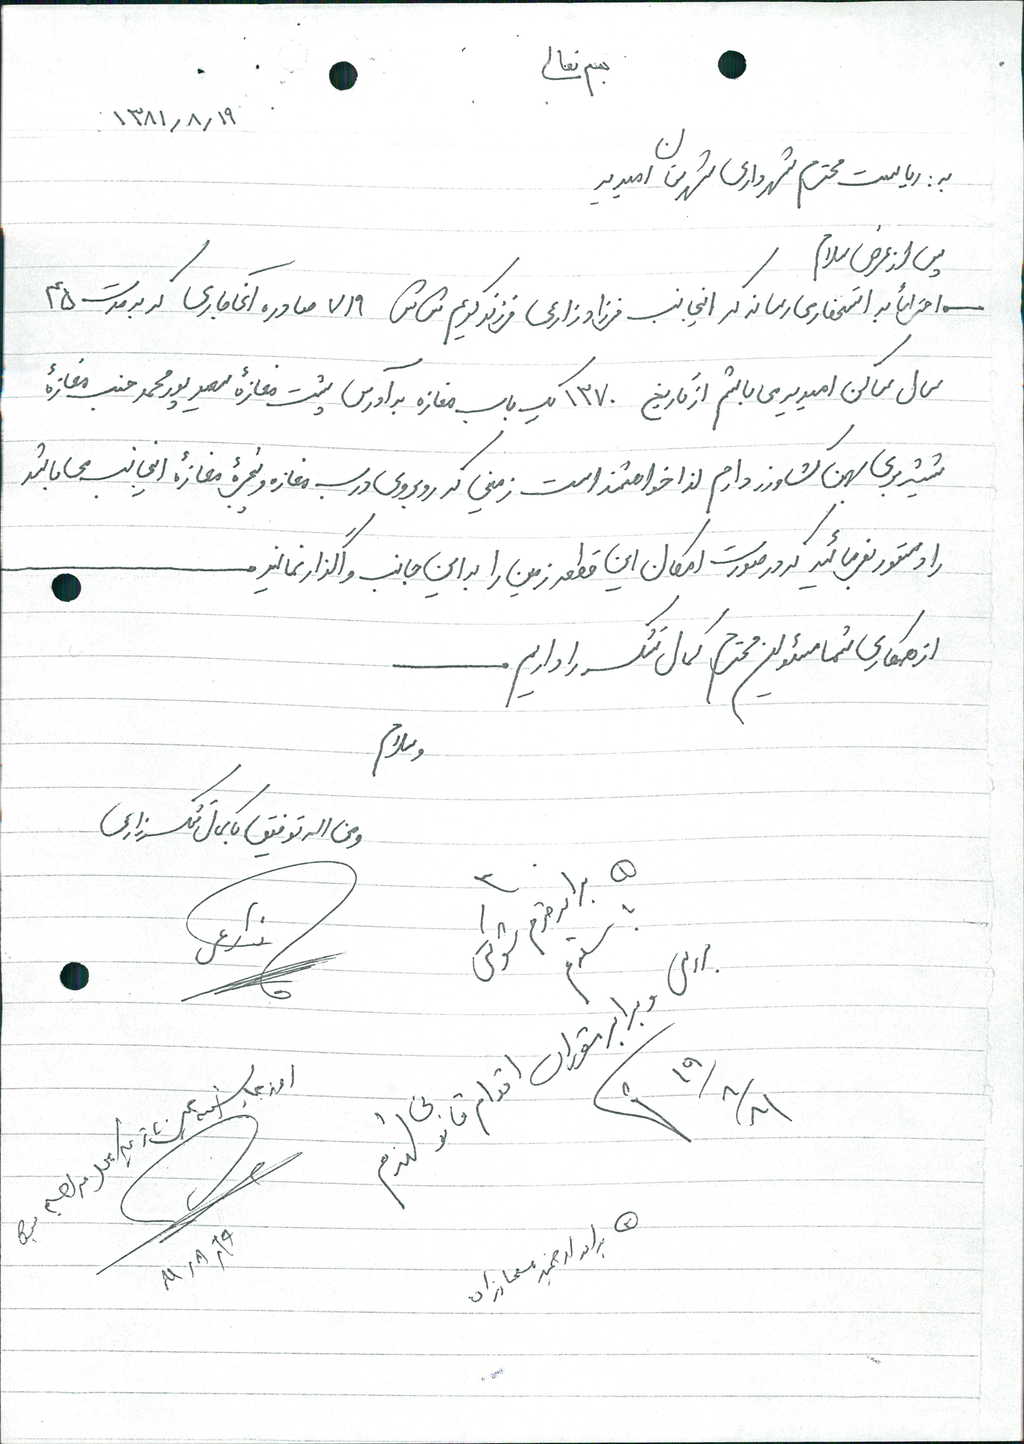 بسم تعالی
۱۳۸۱/۸/۱۹
به: ریاست محترم شهرداری شهرستان امیدیه
پس از عرض سلام
احتراماً به استحضار می‌رساند که اینجانب فرزاد زارعی فرزند کریم ش ش ۷۱۹ صادره آغاجاری که به مدت ۴۵
سال ساکن امیدیه می باشم از تاریخ ۱۳۷۰ یک باب مغازه به آدرس پشت مغازهٔ پورمحمد جنب مغازهٔ
شیشه بری بهمن کشاورز دارم لذا خواهشمند است زمینی که روبروی درب مغازه و پنجرهٔ مغازهٔ اینجانب می باشد
را دستور بفرمائید که در صورت امکان این قطعه زمین را به این جانب واگذار نمائید
از همکاری شما مسئولین محترم کمال تشکر را داریم
وسلام
ومن اله توفیق با کمال تشکر زارعی
زارعی
۱ برادر محترم
با سلام
بررسی و برابر مقررات اقدام قانونی لازم
۸۱/۸/۱۹
۲ برادر ارجمند
۸۱/۸/۲۹